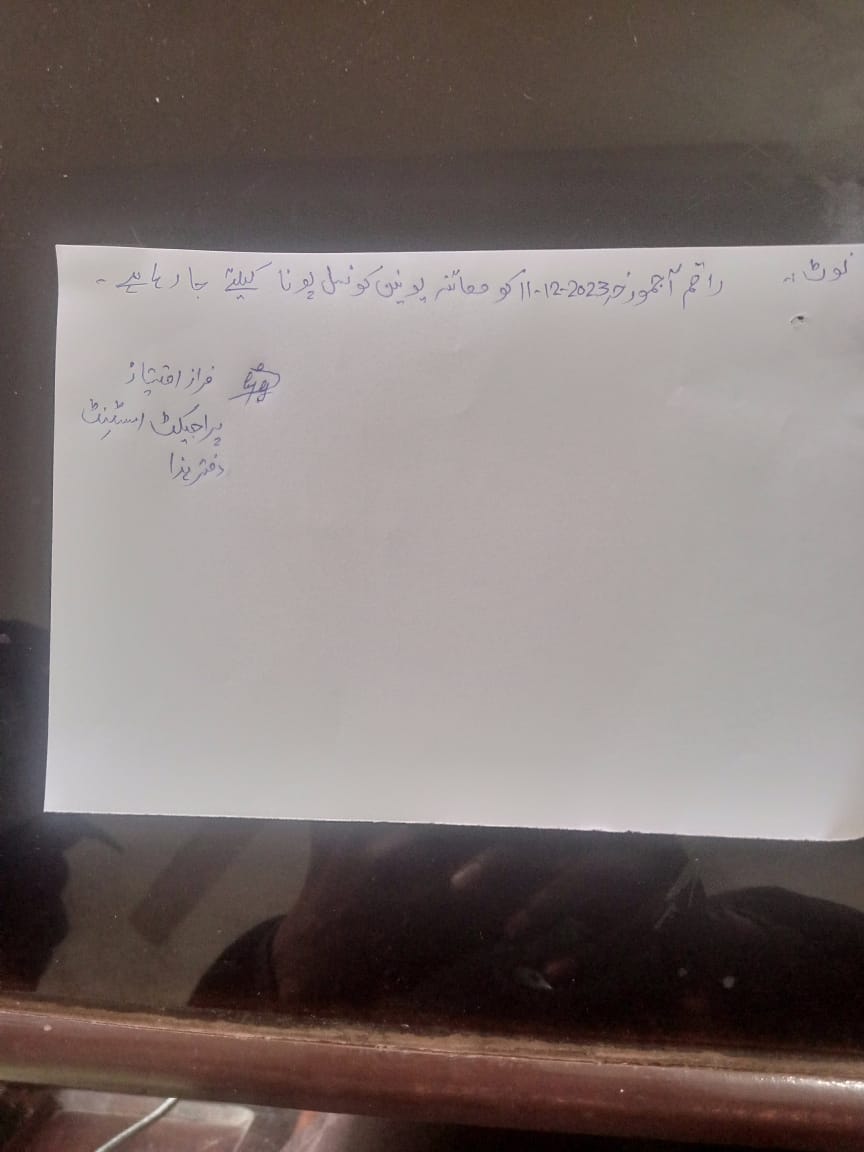 نوٹ:۔ راقم آجمورخہ 11-12-2023 کو معائنہ یونین کونسل پونا کیلئے جا رہا ہے ۔
فراز امتیاز
پراجیکٹ اسسٹنٹ
دفتر ہذا